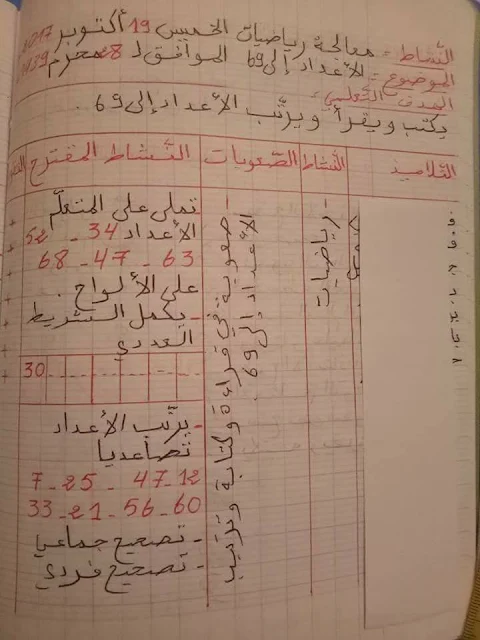 النشاط: معالجة رياضيات الخميس 19 أكتوبر 2017
الموضوع: الأعداد إلى 69 الموافق لـ 28 محرم 1439
الهدف التعلمي:
يكتب ويقرأ ويرتّب الأعداد إلى 69.
التلاميذ النشاط الصّعوبات النّشاط المقترح
- رياضيات
- صعوبة في قراءة وكتابة وترتيب
الأعداد إلى 69.
تملى على المتعلّم
الأعداد 34 - 52
63 - 47 - 68
على الألواح.
- يكمل الشريط
العددي
30
- يرتّب الأعداد
تصاعديا
12 - 47 - 25 - 7
60 - 56 - 21 - 33
- تصحيح جماعي
- تصحيح فردي